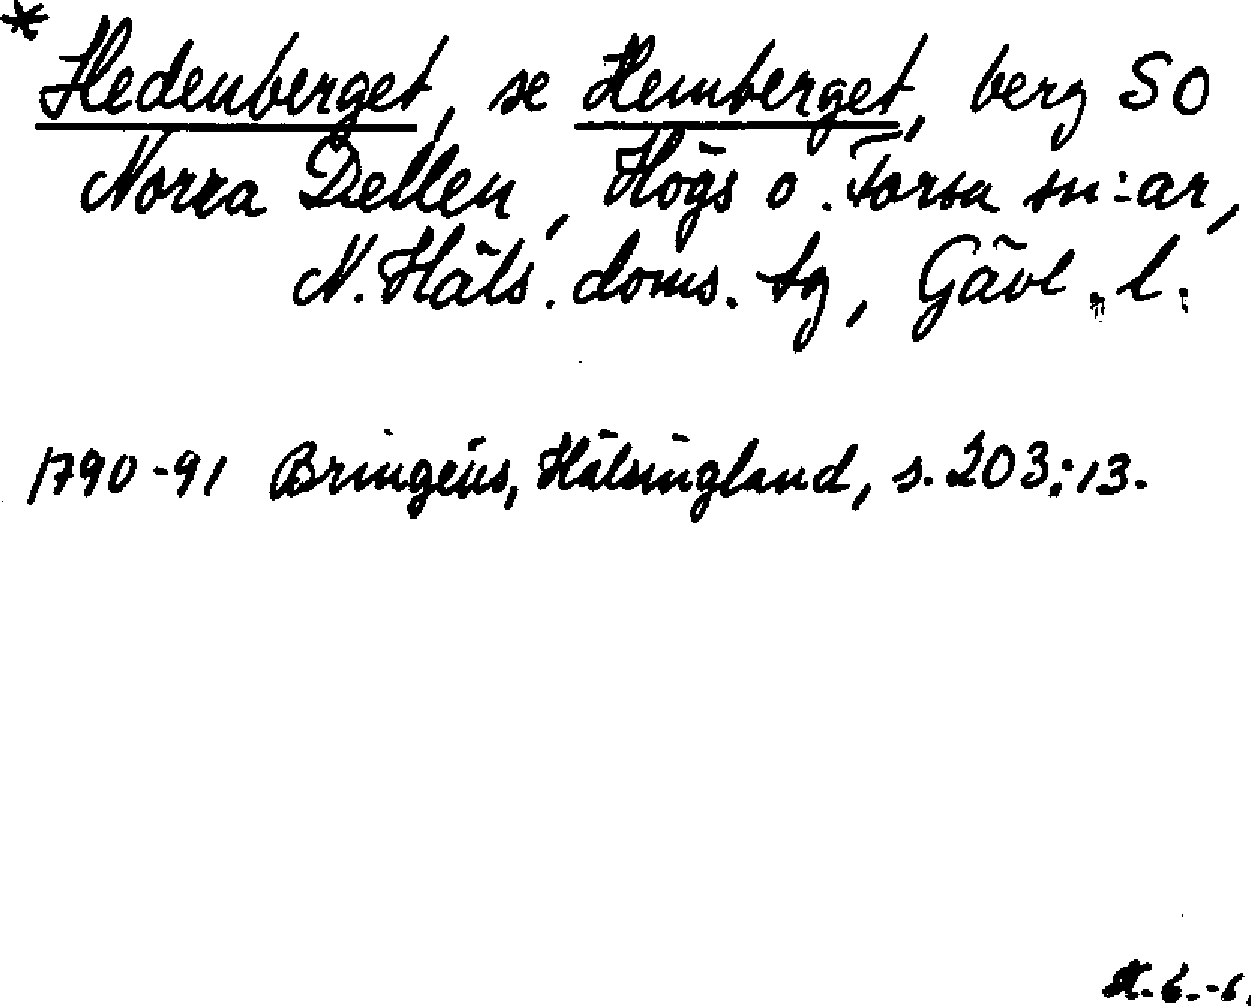 * Hedenberget, se Hemberget, berg SO
Norra Dellen, Högs o. Forsa sn:ar,
N. Häls. doms. tg, Gävl. l.
1790-91 Bringéus, Hälsingland, s. 203:13.